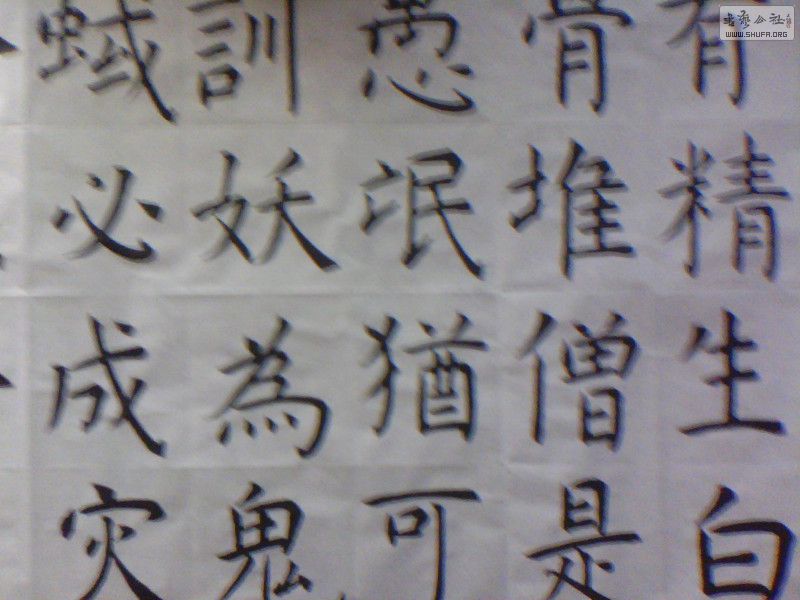 有精生白
骨堆僧是
愚氓猶可
訓妖為鬼
蜮必成灾
书艺公社
WWW.SHUFA.ORG